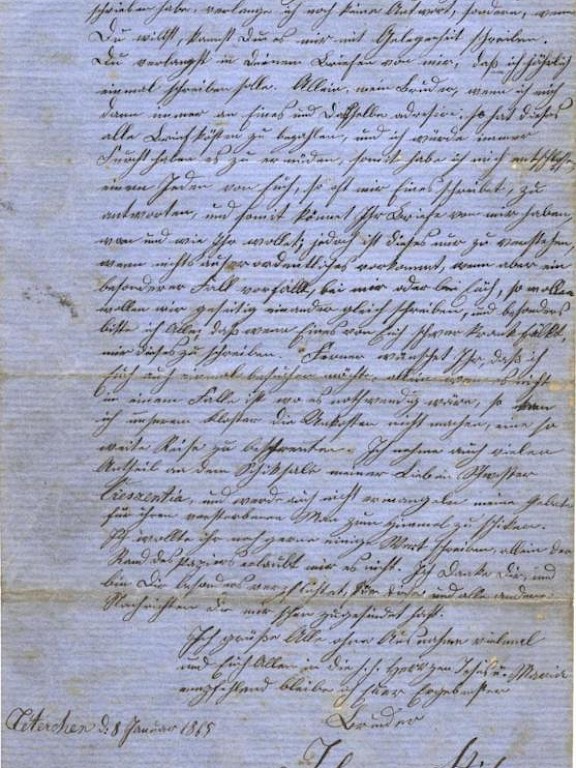 schrieben habe, verlange ich noch keine Antwort, sondern, wenn
Du willst, kannst Du es mir mit Gelegenheit schreiben.
Du verlangst in Deinem Briefen von mir, daß ich jährlich
einmal schreiben solle. Allein, mein Bruder, wenn ich mich
dann immer an Eines und Dasselbe adresire, so hat dieses
alle Briefkösten zu bezahlen, und ich würde immer
Furcht haben es zu ermüden, somit habe ich mich entschlossen
einem Jeden von Euch, so oft mir Eines schreibet, zu
antworten, und somit könnet Ihr Briefe von mir haben,
wan und wie Ihr wollet; jedoch ist dieses nur zu verstehen,
wenn nichts auserordentliches vorkommt, wenn aber ein
besonderer Fall vorfällt, bei mir oder bei Euch, so wollen
wollen wir geseitig einander gleich schreiben, und besonders
bitte ich Alle, daß wenn Eines von Euch schwer krank fällt,
mir dieses zu schreiben. Ferner wünschet Ihr, daß ich
Euch auch einmal besuchen möchte, allein wenn es nicht
in einem Falle ist wo es nothwendig wäre, so kan
ich unserem Kloster die Unkosten nicht machen, eine so
weite Reise zu
Ich nehme auch vielen
Antheil an dem Schiksale meiner Lieben Schwester
Creszentia, und werde auch nicht ermangeln meine Gebete
für ihren verstorbenen Man zum Himmel zu schiken.
Ich wollte ihr noch gerne einige Wort schreiben, allein der
Rand des Papiers erlaubt mir es nicht. Ich Danke Dir, und
bin Dir besonders verpflichtet, für diese und alle andere
Nachrichten die mir schon zugesendet hast.
Ich grüße Alle ohne Ausnahme vielmal
und Euch Allen in die h. h. Herzen Jesus u. Maria
empfehlend bleibe ich Euer Ergebenster
Bruder
Teterchen d. 8 Januar 1865